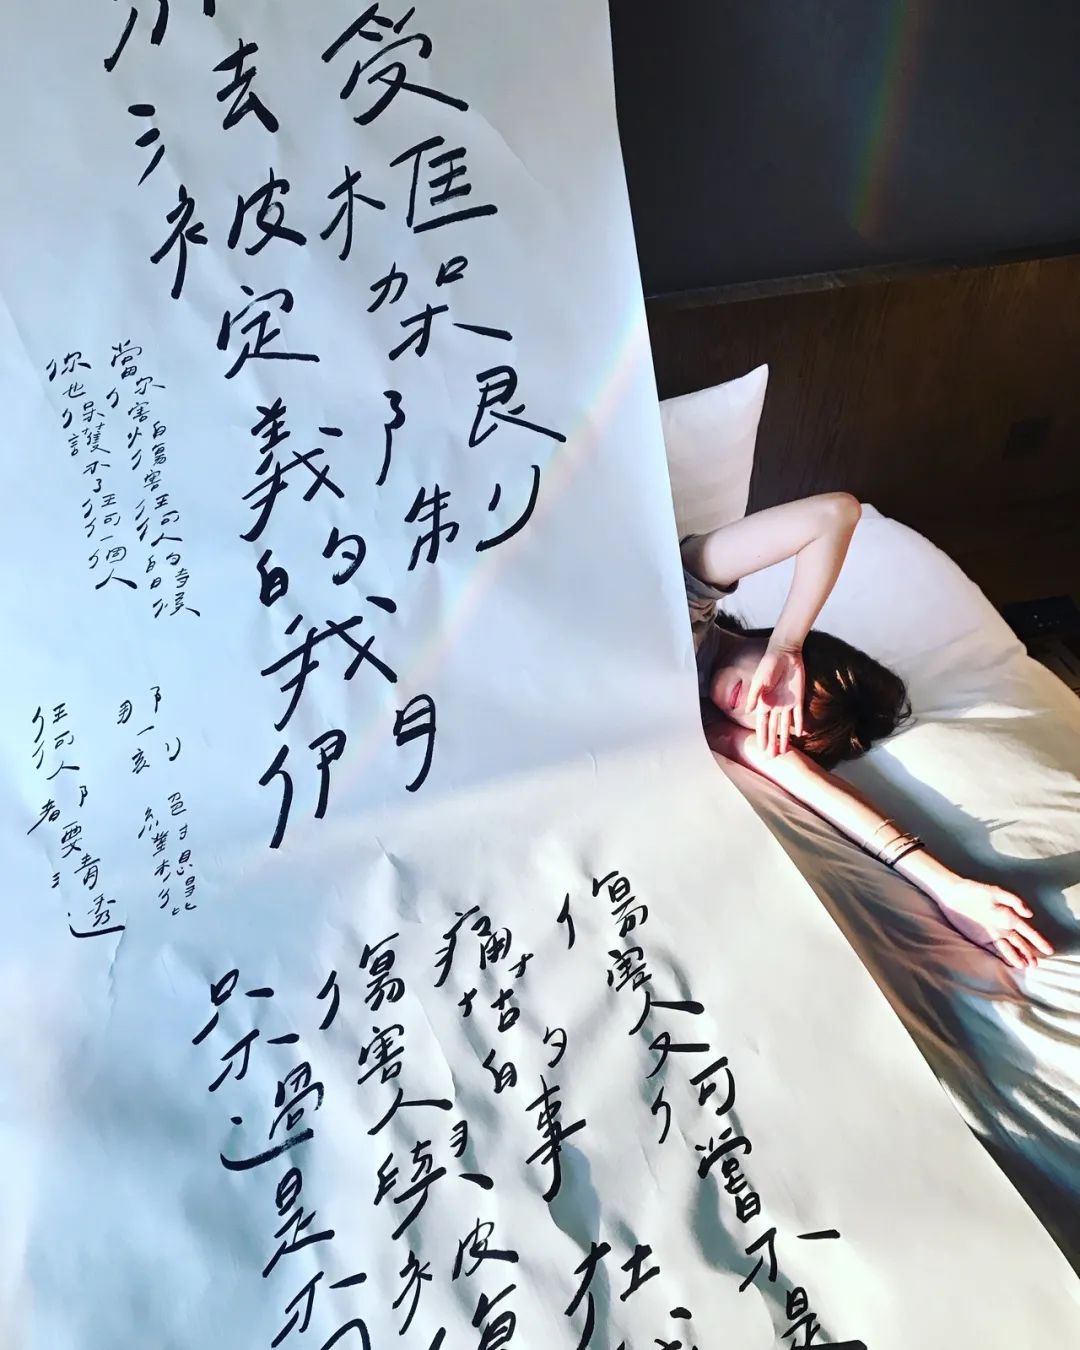 受框架限制
法被定義的我們
當你害怕傷害任何人的時候
你也保護不了任何一個人
那一刻 絕對想得比
任何人都要清透
傷害人又何嘗不是
痛苦的事 在
傷害人與被傷
只不過是不